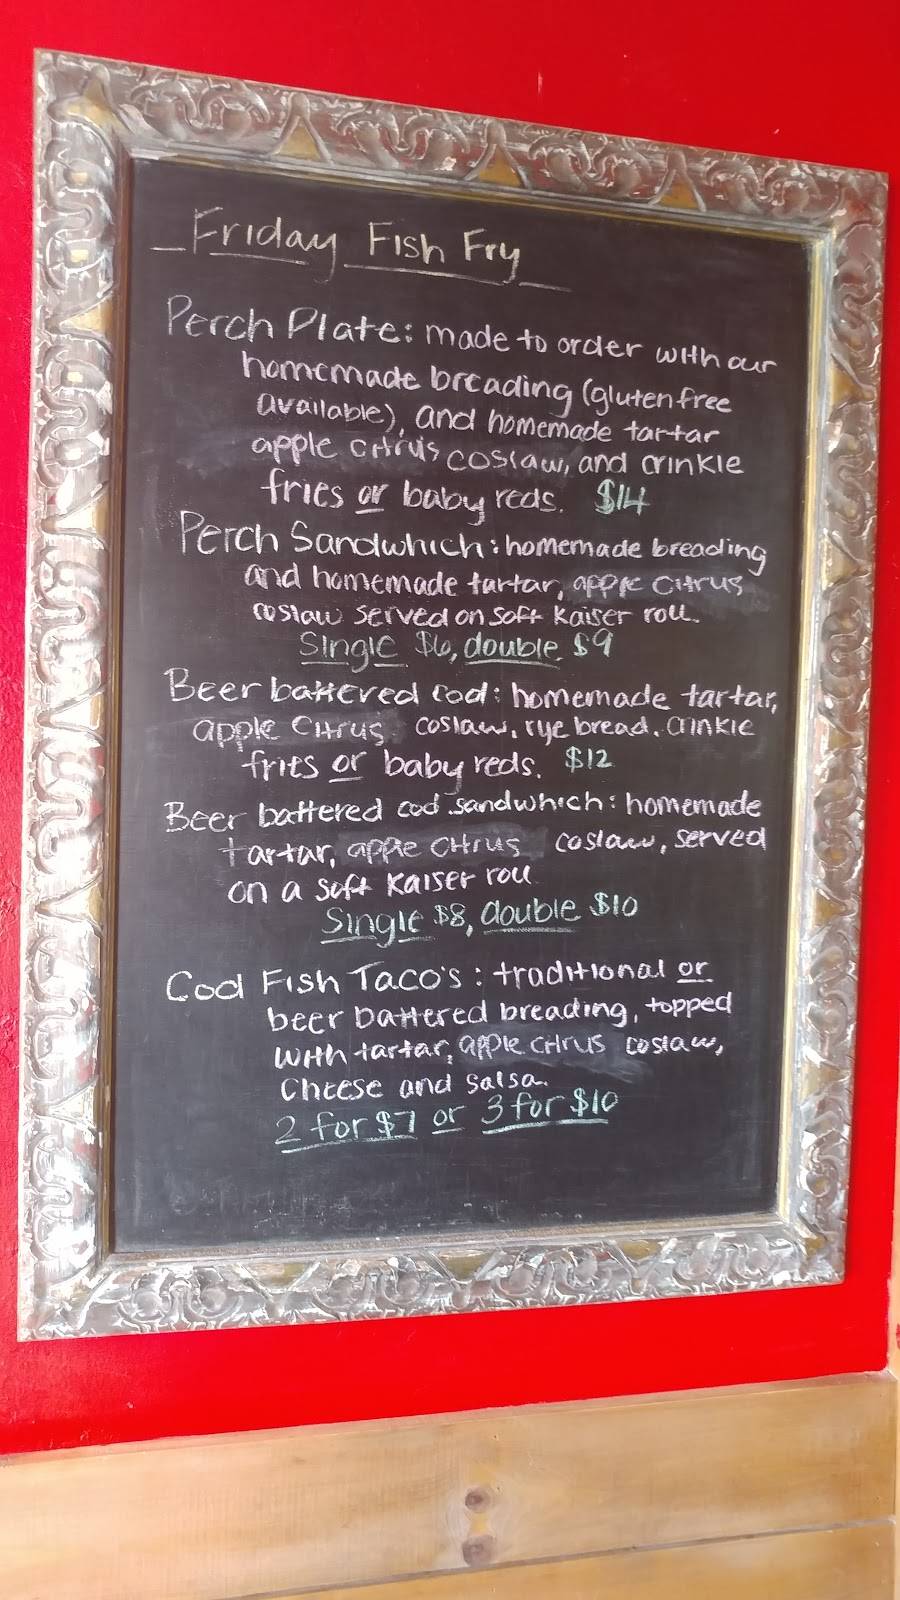 Friday Fish Fry
Perch Plate: made to order with our
homemade breading (gluten free
available), and homemade tartar
apple citrus coslaw, and crinkle
fries or baby reds. $14
Perch Sandwhich: homemade breading
and homemade tartar, apple citrus
coslaw served on soft Kaiser roll.
Single $6, double $9
Beer battered cod: homemade tartar,
apple citrus coslaw, rye bread, crinkle
fries or baby reds. $12
Beer battered cod sandwhich: homemade
tartar, apple citrus coslaw, served
on a soft Kaiser roll
Single $8, double $10
Cod Fish Taco's: traditional or
beer battered breading, topped
with tartar, apple citrus coslaw,
cheese and salsa.
2 for $7 or 3 for $10